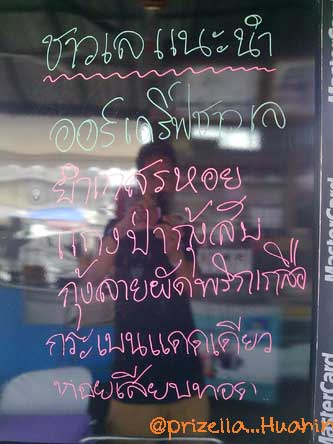 ชาวเลแนะนำ
ออร์เดิร์ฟชาวเล
ยำเกสรหอย
แกงป่ากุ้งสับ
กุ้งลายผัดพริกเกลือ
กระเบนแดดเดียว
หอยเสียบทอด..
MasterCard
MasterCard
@prizella...Huahik